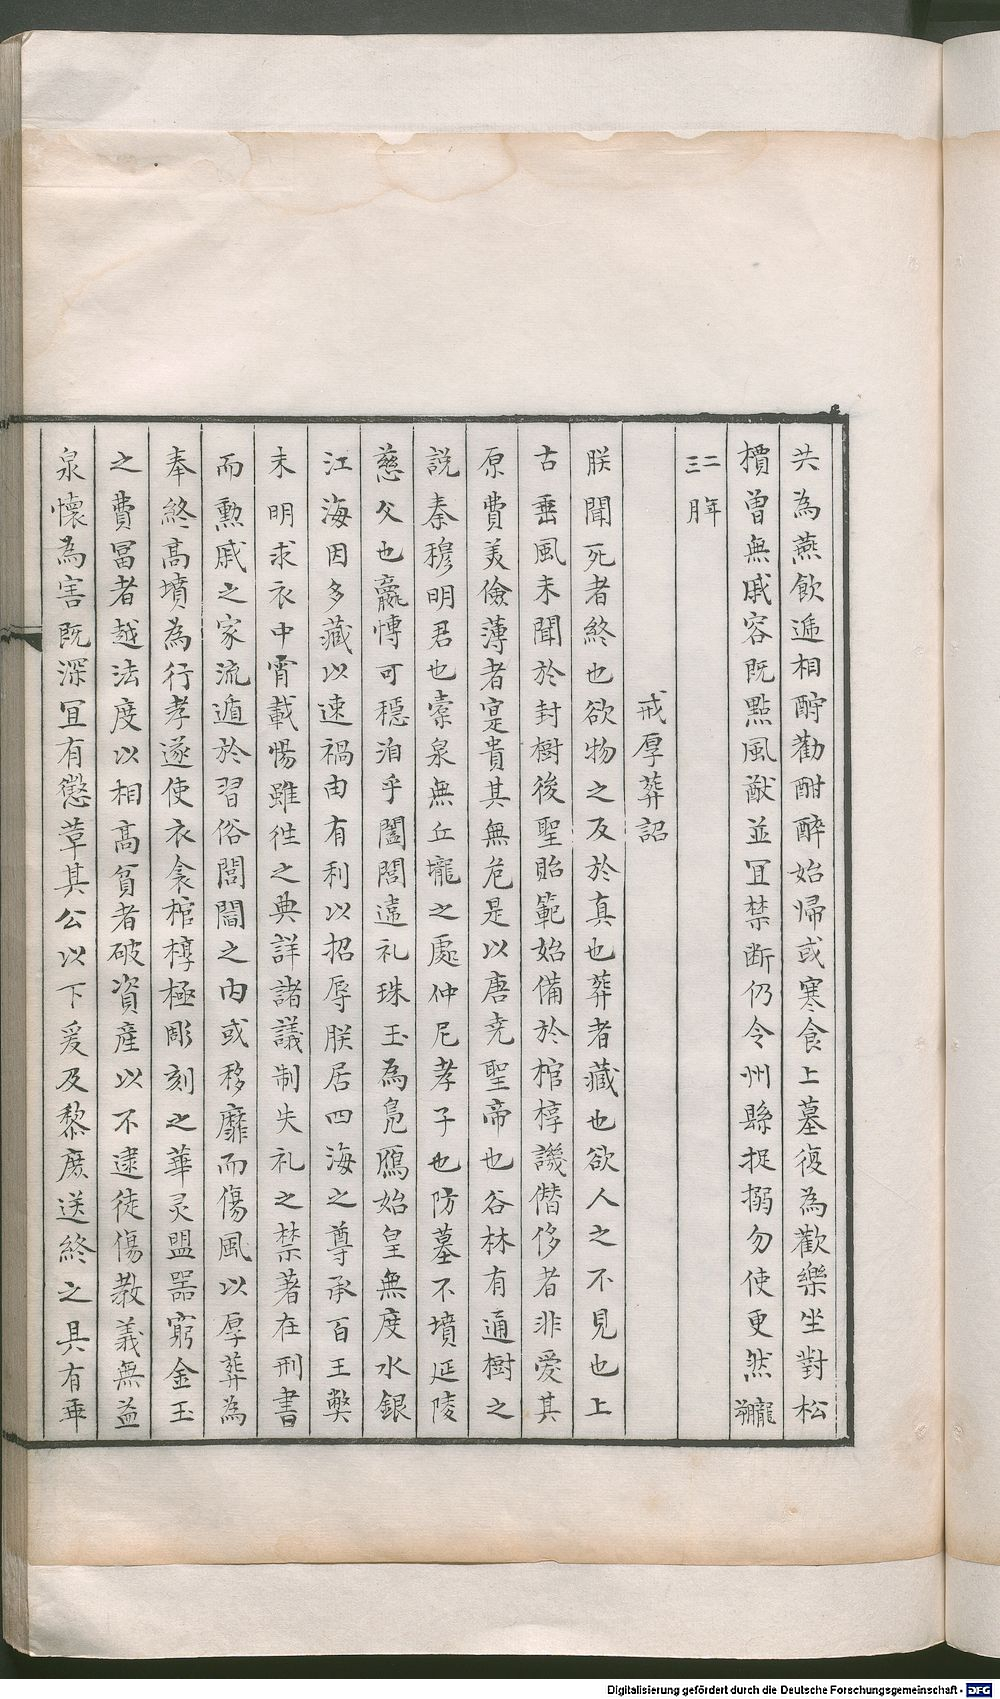 共為燕飲遞相酧勸酣醉始歸或寒食上墓復為歡樂坐對松
檟曽無戚容既㸃風猷並冝禁断仍令州縣捉搦勿使更然龍朔
二年三月
戒厚葬詔
朕聞死者終也欲物之反於真也葬者藏也欲人之不見也上
古垂風未聞於封樹後聖貽範始備於棺椁譏僣侈者非愛其
原費美儉薄者寔貴其無危是以唐尭聖帝也谷林有通樹之
説秦穆明君也槖泉無丘壠之處仲尼孝子也防墓不墳延陵
慈父也嬴慱可穩洎乎闔閭違礼珠玉為鳬鴈始皇無度水銀
江海因多藏以速禍由有利以招辱朕居四海之尊承百王弊
未明求衣中宵載惕雖徃之典詳諸議制失礼之禁著在刑書
而勲戚之家流遁於習俗閭閻之内或移靡而傷風以厚葬為
奉終高墳為行孝遂使衣衾棺椁極彫刻之華灵盟器窮金玉
之費冨者越法度以相高貧者破資産以不逮徒傷教義無益
泉懷為害既深冝有懲革其公以下爰及黎庻送終之具有乖
Digitalisierung gefördert durch die Deutsche Forschungsgemeinschaft - DFG